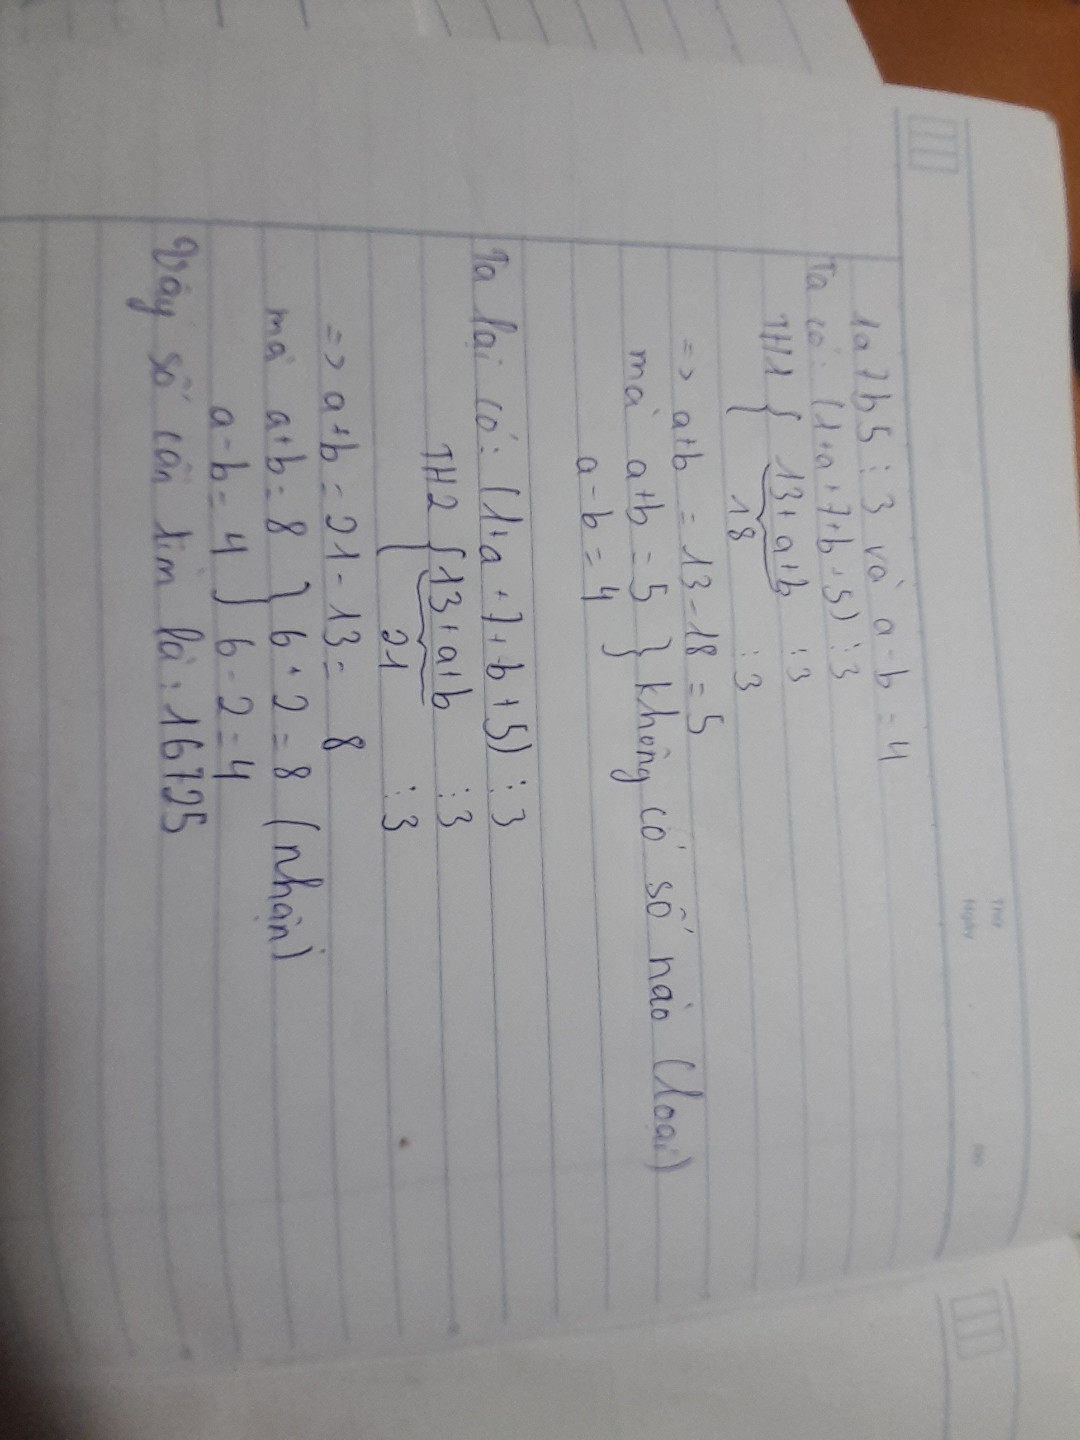 Thứ
Ngày
No.
1a7b5 ⋮ 3 và a-b = 4
Ta có: (1+a+7+b+5) ⋮ 3
TH1 { 13+a+b ⋮ 3
{ 18 ⋮ 3
=> a+b = 13-18 = 5
mà a+b = 5 } không có số nào (loại)
a-b = 4
Ta lại có: (1+a+7+b+5) ⋮ 3
TH2 { 13+a+b ⋮ 3
{ 21 ⋮ 3
=> a+b = 21-13 = 8
mà a+b = 8 } 6+2=8 (nhận)
a-b = 4 } 6-2=4
Vậy số cần tìm là: 16725